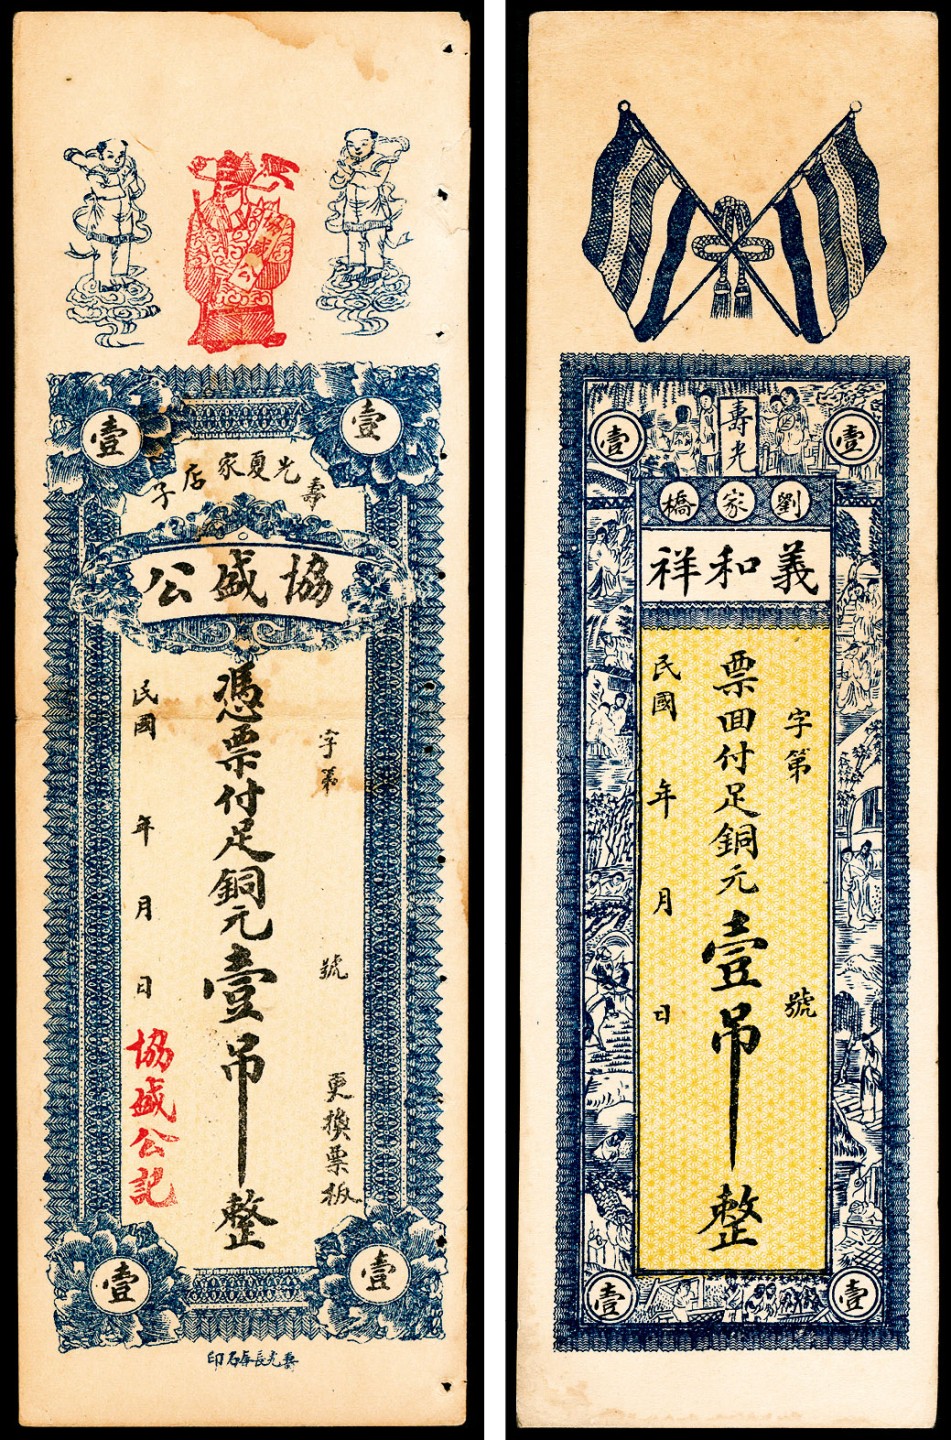 協盛公
壹
壹
壽光夏家店子
協盛公
字第
號
更換票板
憑票付足銅元壹吊整
民國
年
月
日
協盛公記
壹
壹
壹
壹
壽光
劉家橋
義和祥
字第
號
票面付足銅元壹吊整
民國
年
月
日
壹
壹